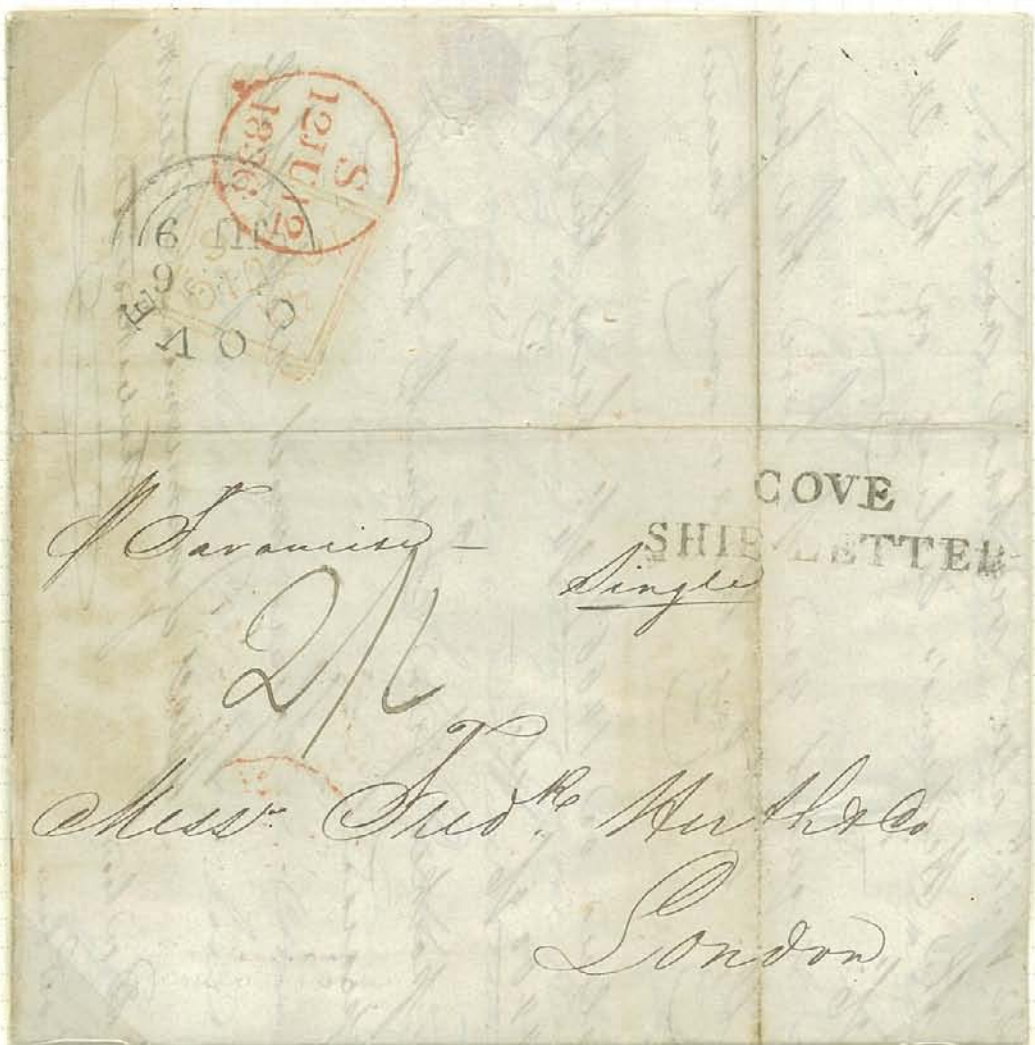 S
12 JU 12
1836
COVE
JU 9
COVE
SHIP LETTER
Single
2/
Messrs Fredk Huth & Co
London